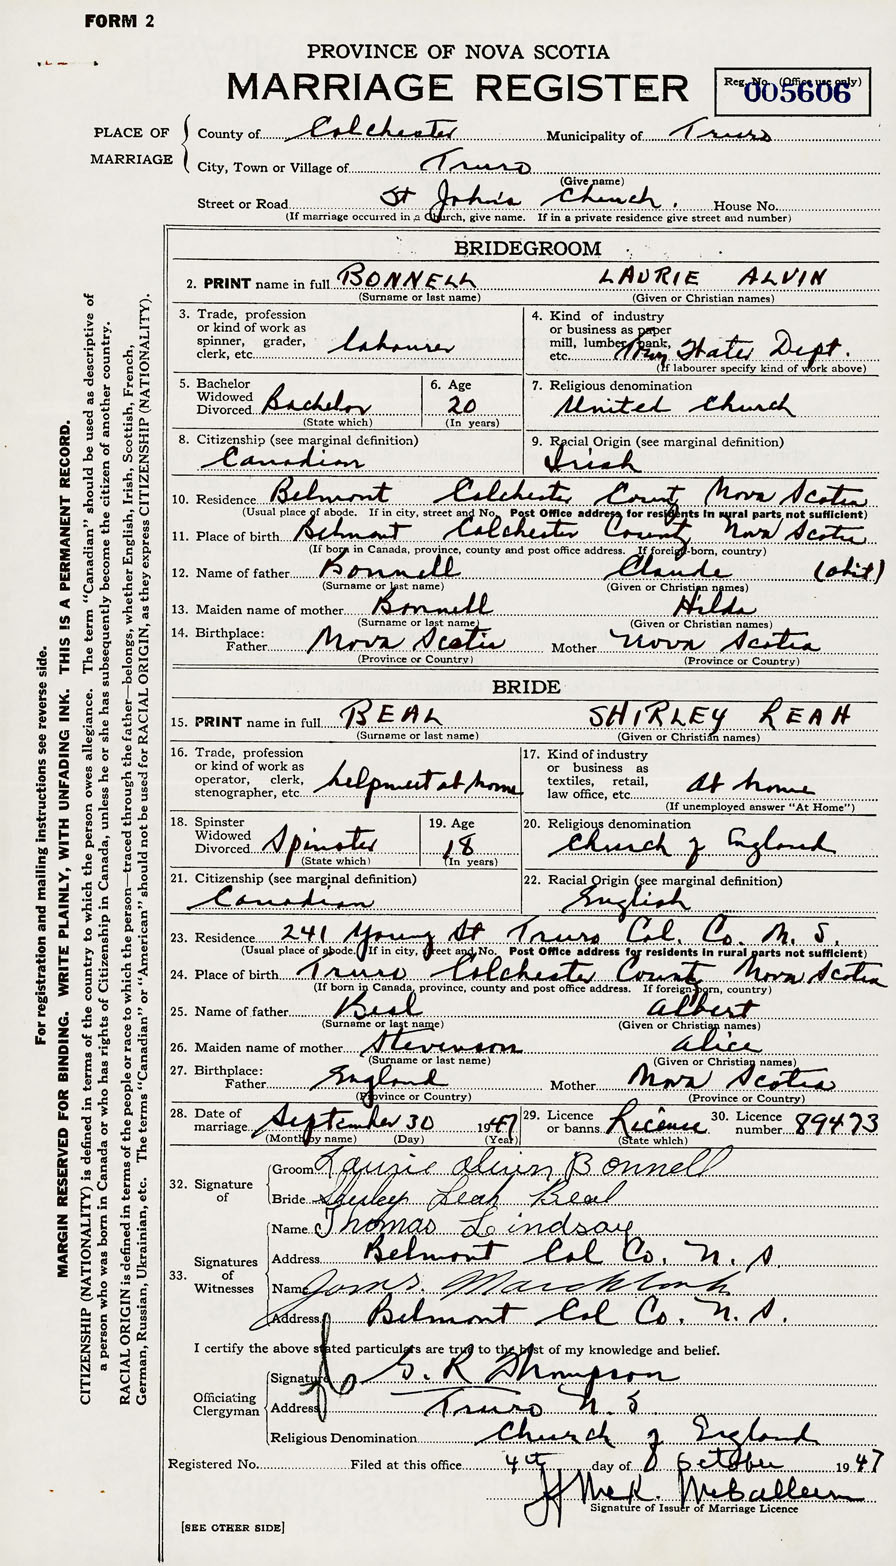 FORM 2
PROVINCE OF NOVA SCOTIA
MARRIAGE REGISTER
Reg. No. (Office use only)
005606
PLACE OF MARRIAGE
County of Colchester Municipality of Truro
City, Town or Village of Truro
(Give name)
Street or Road St John's Church. House No.
(If marriage occurred in a Church, give name. If in a private residence give street and number)
BRIDEGROOM
2. PRINT name in full BONNELL LAURIE ALVIN
(Surname or last name) (Given or Christian names)
3. Trade, profession or kind of work as spinner, grader, clerk, etc. labourer
4. Kind of industry or business as paper mill, lumber, bank, etc. Water Dept.
(If labourer specify kind of work above)
5. Bachelor Widowed Divorced Bachelor
(State which)
6. Age 20
(In years)
7. Religious denomination
United Church
8. Citizenship (see marginal definition)
Canadian
9. Racial Origin (see marginal definition)
Irish
10. Residence Belmont Colchester Count Nova Scotia
(Usual place of abode. If in city, street and No. Post Office address for residents in rural parts not sufficient)
11. Place of birth Belmont Colchester County Nova Scotia
(If born in Canada, province, county and post office address. If foreign-born, country)
12. Name of father Bonnell Claude (obit)
(Surname or last name) (Given or Christian names)
13. Maiden name of mother Bonnell Hilda
(Surname or last name) (Given or Christian names)
14. Birthplace: Father Nova Scotia Mother Nova Scotia
(Province or Country) (Province or Country)
BRIDE
15. PRINT name in full BEAL SHIRLEY LEAH
(Surname or last name) (Given or Christian names)
16. Trade, profession or kind of work as operator, clerk, stenographer, etc. helpmeet at home
17. Kind of industry or business as textiles, retail, law office, etc. at home
(If unemployed answer "At Home")
18. Spinster Widowed Divorced Spinster
(State which)
19. Age 18
(In years)
20. Religious denomination
Church of England
21. Citizenship (see marginal definition)
Canadian
22. Racial Origin (see marginal definition)
English
23. Residence 241 Young St Truro Col. Co. N. S.
(Usual place of abode. If in city, street and No. Post Office address for residents in rural parts not sufficient)
24. Place of birth Truro Colchester County Nova Scotia
(If born in Canada, province, county and post office address. If foreign-born, country)
25. Name of father Beal Albert
(Surname or last name) (Given or Christian names)
26. Maiden name of mother Stevenson Alice
(Surname or last name) (Given or Christian names)
27. Birthplace: Father England Mother Nova Scotia
(Province or Country) (Province or Country)
28. Date of marriage September 30 1947
(Month by name) (Day) (Year)
29. Licence or banns License
(State which)
30. Licence number 89473
32. Signature of
Groom Laurie Alvin Bonnell
Bride Shirley Leah Beal
33. Signatures of Witnesses
Name Thomas Lindsay
Address Belmont Col Co. N. S.
Name
Address Belmont Col Co. N. S.
I certify the above stated particulars are true to the best of my knowledge and belief.
Officiating Clergyman
Signature G. R Thompson
Address Truro N. S
Religious Denomination Church of England
Registered No. Filed at this office 4th day of October 1947
Signature of Issuer of Marriage Licence
[SEE OTHER SIDE]
For registration and mailing instructions see reverse side.
MARGIN RESERVED FOR BINDING. WRITE PLAINLY, WITH UNFADING INK. THIS IS A PERMANENT RECORD.
CITIZENSHIP (NATIONALITY) is defined in terms of the country to which the person owes allegiance. The term "Canadian" should be used as descriptive of
a person who was born in Canada or who has rights of Citizenship in Canada, unless he or she has subsequently become the citizen of another country.
RACIAL ORIGIN is defined in terms of the people or race to which the person—traced through the father—belongs, whether English, Irish, Scottish, French,
German, Russian, Ukrainian, etc. The terms "Canadian" or "American" should not be used for RACIAL ORIGIN, as they express CITIZENSHIP (NATIONALITY).